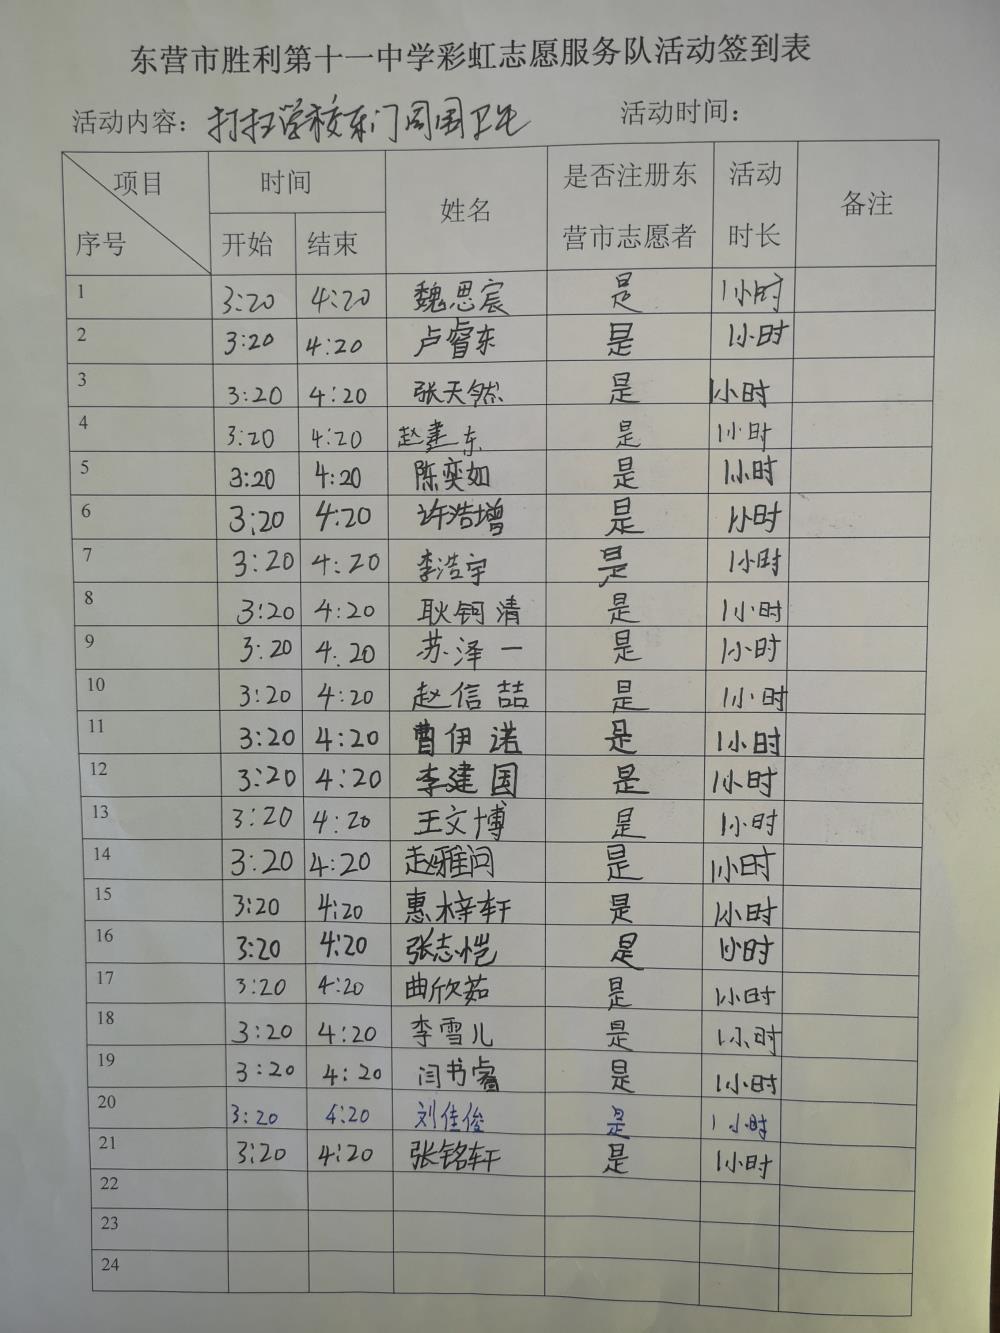 东营市胜利第十一中学彩虹志愿服务队活动签到表
活动内容：打扫学校东门周围卫生 活动时间：
项目 序号 时间 开始 结束 姓名 是否注册东营市志愿者 活动时长 备注
1 3:20 4:20 魏思宸 是 1小时
2 3:20 4:20 卢睿东 是 1小时
3 3:20 4:20 张天然 是 1小时
4 3:20 4:20 赵建东 是 1小时
5 3:20 4:20 陈奕如 是 1小时
6 3:20 4:20 许浩增 是 1小时
7 3:20 4:20 李浩宇 是 1小时
8 3:20 4:20 耿钶清 是 1小时
9 3:20 4.20 苏泽一 是 1小时
10 3:20 4:20 赵信喆 是 1小时
11 3:20 4:20 曹伊诺 是 1小时
12 3:20 4:20 李建国 是 1小时
13 3:20 4:20 王文博 是 1小时
14 3:20 4:20 赵雅问 是 1小时
15 3:20 4:20 惠梓轩 是 1小时
16 3:20 4:20 张志恺 是 1小时
17 3:20 4:20 曲欣茹 是 1小时
18 3:20 4:20 李雪儿 是 1小时
19 3:20 4:20 闫书睿 是 1小时
20 3:20 4:20 刘佳俊 是 1小时
21 3:20 4:20 张铭轩 是 1小时
22
23
24